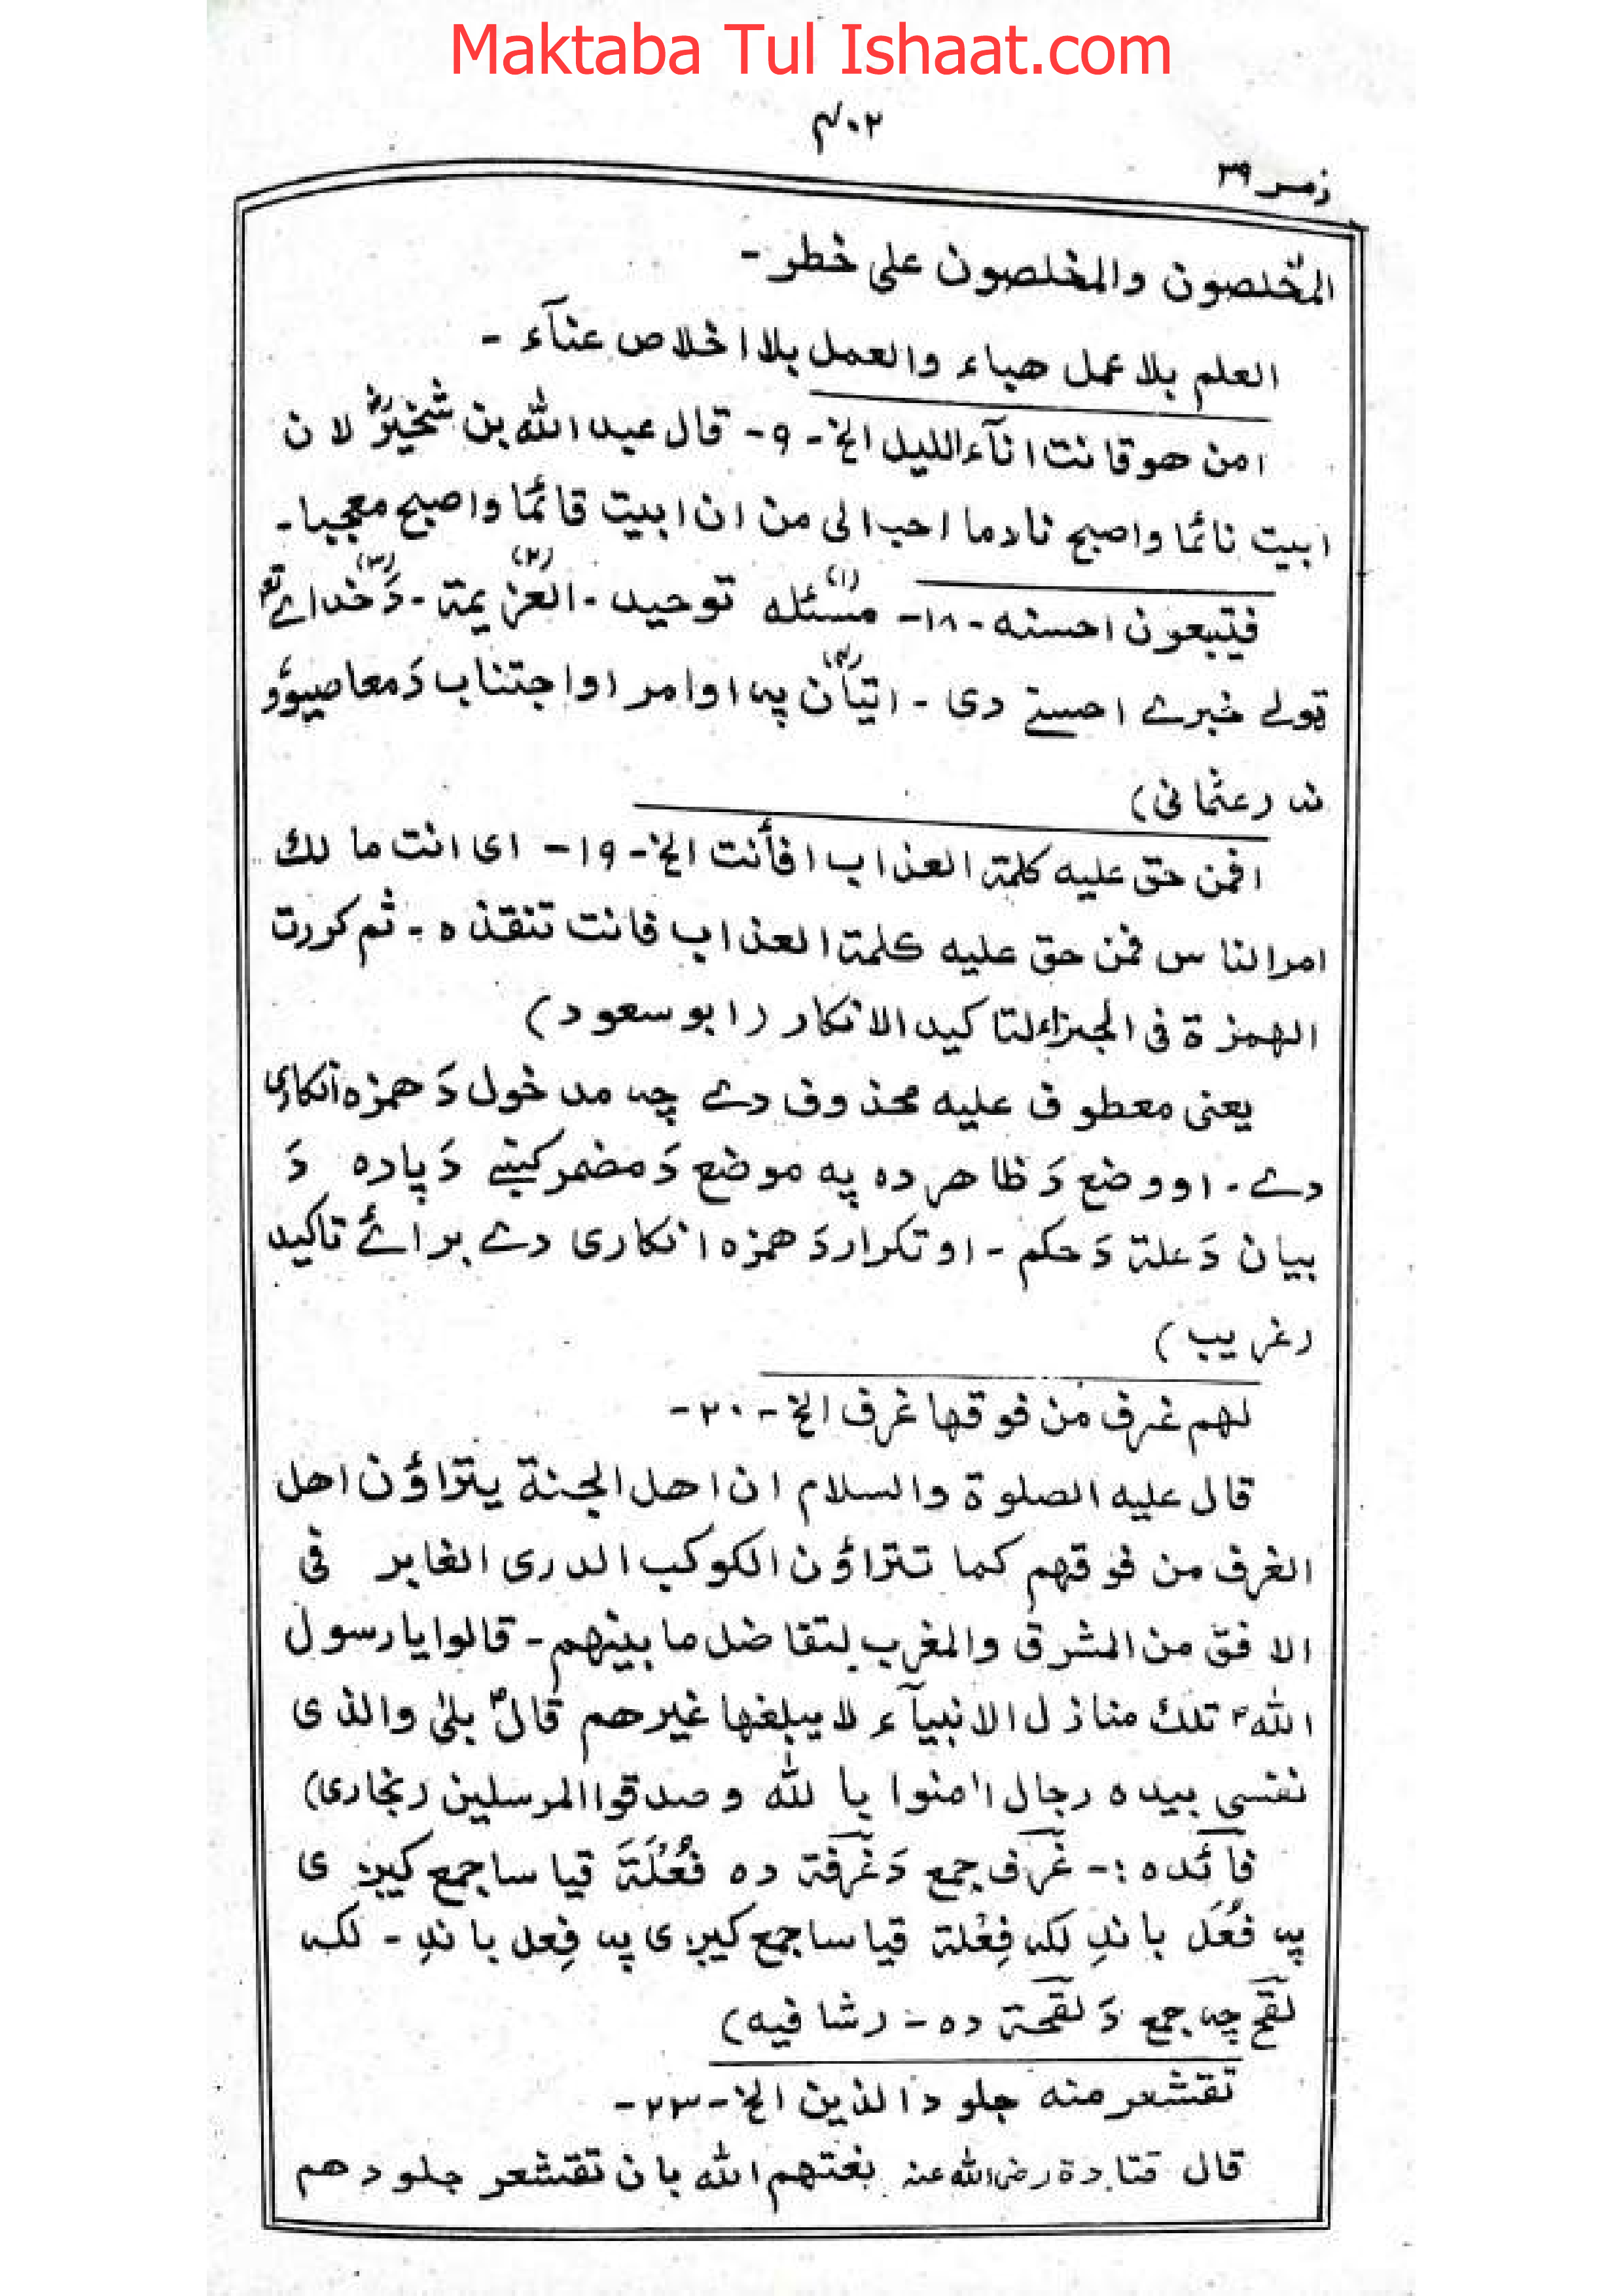 Maktaba Tul Ishaat.com
۴۰۲
زمر ۳۹
المخلصون والمخلصون علی خطر -
العلم بلا عمل هباء والعمل بلا اخلاص عنآء -
امن هو قانت انآء اللیل الخ - ۹ - قال عبد الله بن شخیرؓ لان
ابیت نائما واصبح نادما احب الی من ان ابیت قائما واصبح معجبا -
فیتبعون احسنه - ۱۸ - (۱) مسئله توحید - (۲) العزیمة - (۳) دَ خدائے
ټولے خبرے احسنے دی - (۴) اتیان په اوامر او اجتناب دَ معاصیوؤ
نه (عثمانی)
افمن حق علیه کلمة العذاب افأنت الخ - ۱۹ - ای انت مالك
امر الناس فمن حق علیه کلمة العذاب فانت تنقذه - ثم کررت
الهمزة فی الجزاء لتاکید الانکار (ابو سعود)
یعنی معطوف علیه محذوف دے چه مدخول دَ همزه انکاری
دے - او وضع دَ ظاهر ده په موضع دَ مضمر کښے دَ پاره دَ
بیان دَ علة دَ حکم - او تکرار دَ همزه انکاری دے برائے تاکید
(غریب)
لهم غرف من فوقها غرف الخ - ۲۰ -
قال علیه الصلوة والسلام ان اهل الجنة یتراؤن اهل
الغرف من فوقهم کما تتراؤن الکوکب الدری الغابر فی
الافق من المشرق والمغرب لتفاضل ما بینهم - قالوا یا رسول
الله تلك منازل الانبیآء لا یبلغها غیرهم قال بلیٰ والذی
نفسی بیده رجال اٰمنوا بالله وصدقوا المرسلین (بخاری)
فائده :- غرف جمع دَ غرفة ده فُعْلَة قیاسا جمع کیږی
په فُعَل باندِ لکه فِعْلة قیاسا جمع کیږی په فِعل باندِ - لکه
لقح چه جمع دَ لقحة ده - (شافیه)
تقشعر منه جلود الذین الخ - ۲۳ -
قال قتادة رضی الله عنه نعتهم الله بان تقشعر جلودهم